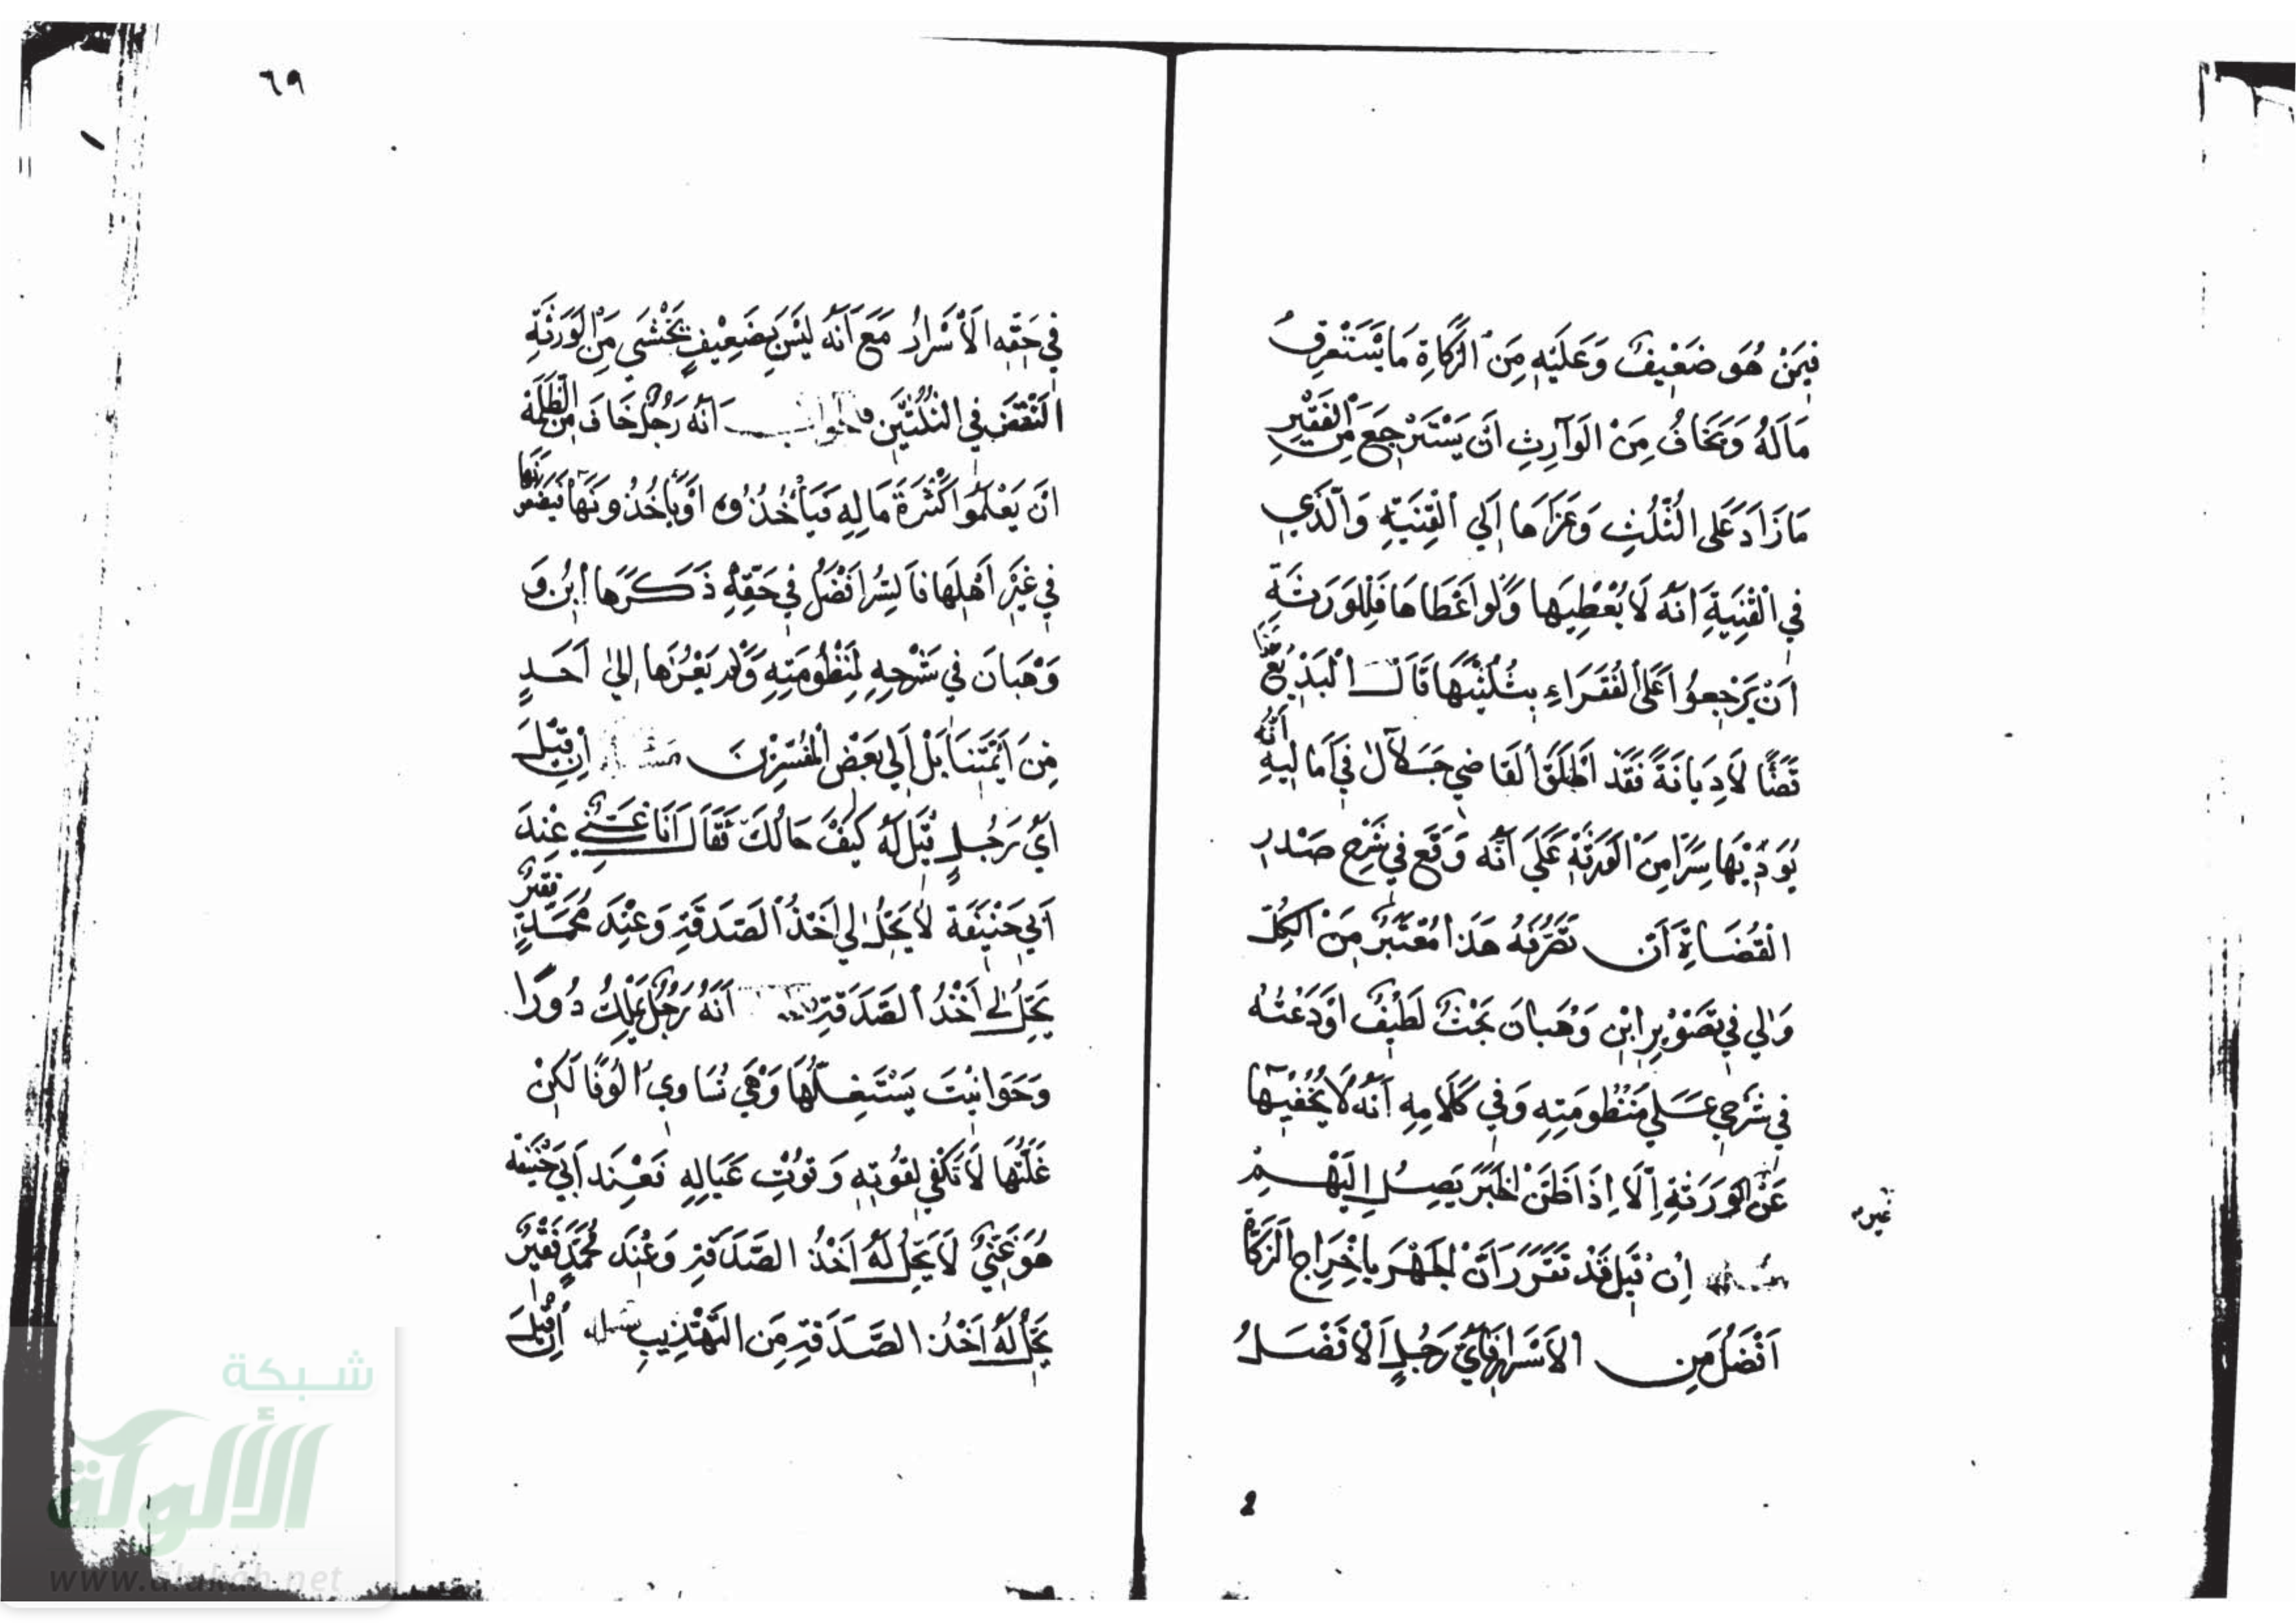 فيمن هو ضعيف وعليه من الزكاة ما يستغرق
ماله ويخاف من الوارث ان يسترجع من الفقير
ما زاد على الثلث وعزاها الي القنية والذي
في القنية انه لا يعطيها ولو اعطاها فللورثة
ان يرجعوا على الفقراء بثلثيها قال البديع هذا
قضًا لا ديانة فقد اطلق القاضي جلال في اماليه انه
يوديها سرًا من الورثة علي انه وقع في شرح صدر
القضاة ان تصرفه هذا معتبر من الكل
ولي في تصوير ابن وهبان بحث لطيف اودعته
في شرحي علي منظومته وفي كلامه انه لا يخفيها
عن الورثة الا اذا ظن الخبر يصل اليهم
غيره
مسئلة ان قيل قد تقرر ان الجهر باخراج الزكاة
افضل من الاسرار فاي رجل الافضل
2
٦٩
في حقه الاسرار مع انه ليس بضعيف يخشى من الورثة
النقض في النكتتين فالجواب انه رجل خاف من الظلمة
ان يعلموا كثرة ماله فيأخذوه او يأخذونها فيضعونها
في غير اهلها فالسر افضل في حقه ذكرها ابن و
وهبان في شرحه لمنظومته ولم يعزها الي احد
من ائمتنا بل الي بعض المفسرين مسئلة ان قيل
اي رجل قيل له كيف حالك فقال انا غني عند
ابي حنيفة لا يحل لي اخذ الصدقة وعند محمد فقير
يحل لي اخذ الصدقة انه رجل يملك دورا
وحوانيت يستغلها وهي تساوي الوفا لكن
غلتها لا تكفي لقوته وقوت عياله فعند ابي حنيفة
هو غني لا يحل له اخذ الصدقة وعند محمد فقير
يحل له اخذ الصدقة من التهذيب مسئلة ان قيل
شبكة
الألوكة
www.alukah.net